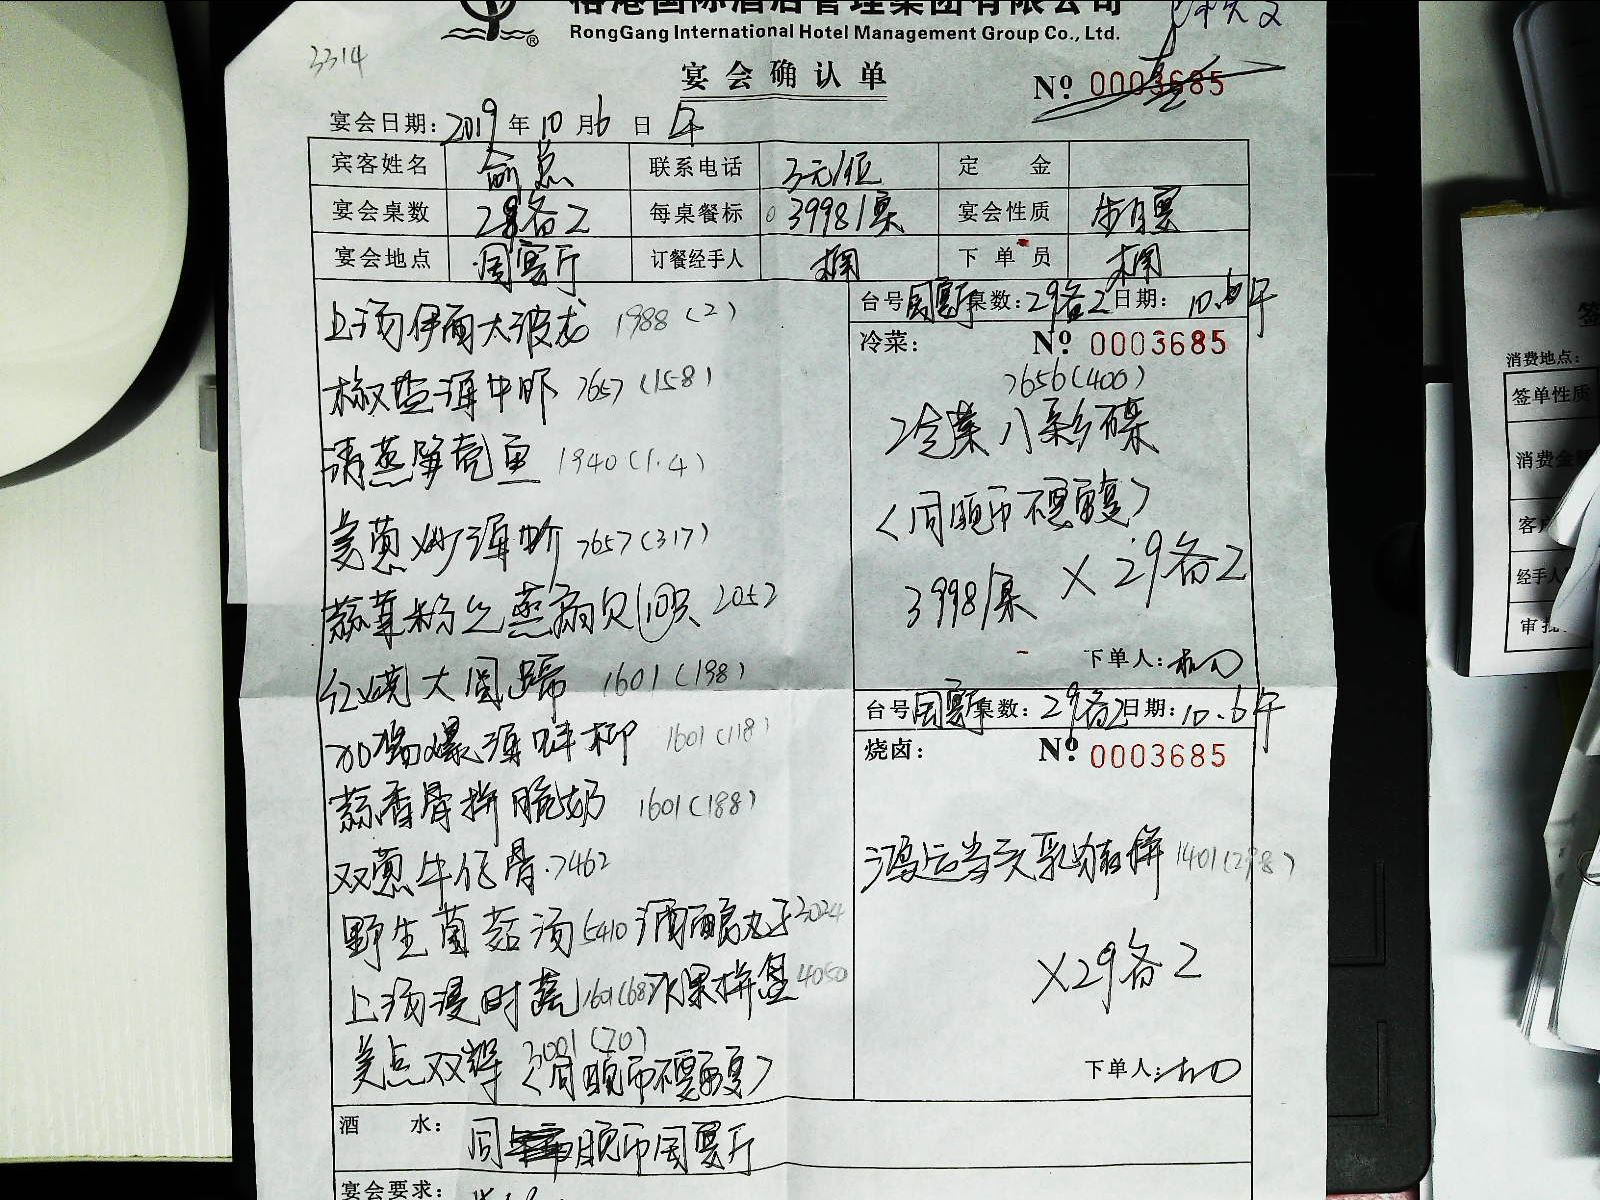 榕港国际酒店管理集团有限公司
RongGang International Hotel Management Group Co., Ltd.
®
3314
宴会确认单
Nº 0003685
宴会日期: 2019 年 10 月 6 日 午
宾客姓名 俞总 联系电话 3元/位 定 金
宴会桌数 29备2 每桌餐标 3998/桌 宴会性质
宴会地点 国宴厅 订餐经手人 下单员
上汤伊面大波龙 1988(2)
椒盐 7657(158)
清蒸笋壳鱼 1940(1.4)
姜葱炒 7657(317)
蒜茸粉丝蒸扇贝(10只) 2052
红烧大圆蹄 1601(198)
爆海蚌柳 1601(118)
蒜香骨拼脆奶 1601(188)
双葱牛仔骨 7462
野生菌菇汤 5410 酒酿丸子 3024
上汤浸时蔬 1601(68) 水果拼盘 4050
美点双辉 3001(20)
(同 不要重复)
台号 国宴厅 桌数: 29备2 日期: 10.6午
冷菜: Nº 0003685
7656(400)
冷菜八彩碟
(同 不要重复)
3998/桌 X 29备2
下单人:
台号 国宴厅 桌数: 29备2 日期: 10.6午
烧卤: Nº 0003685
鸿运当头乳猪拼 1401(298)
X29备2
下单人:
酒 水: 同 国宴厅
宴会要求:
消费地点:
签单性质
消费金
客
经手人
审批